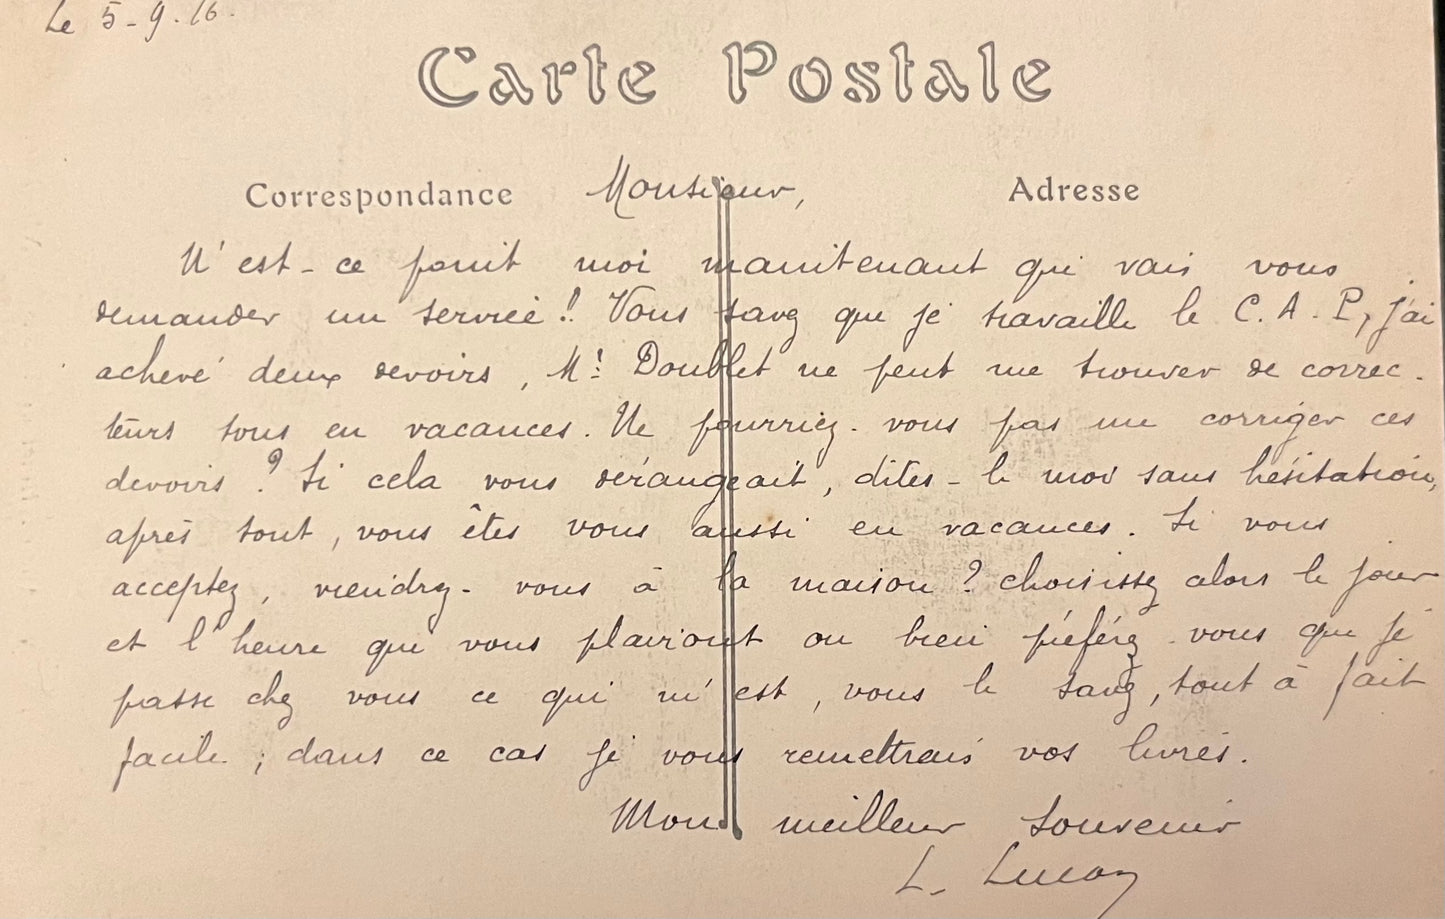 Le 5-9.16.
Carte Postale
Correspondance Monsieur, Adresse
N'est-ce point moi maintenant qui vais vous
demander un service !! Vous savez que je travaille le C.A.P, j'ai
achevé deux devoirs, Mr Doublet ne peut me trouver de correc-
teurs tous en vacances. Ne pourriez-vous pas me corriger ces
devoirs ? Si cela vous dérangeait, dites-le moi sans hésitation,
après tout, vous êtes vous aussi en vacances. Si vous
acceptez, viendrez-vous à la maison ? choisissez alors le jour
et l'heure qui vous plairont ou bien préférez-vous que je
passe chez vous ce qui m'est, vous le savez, tout à fait
facile ; dans ce cas je vous remettrais vos livres.
Mon meilleur souvenir
L.